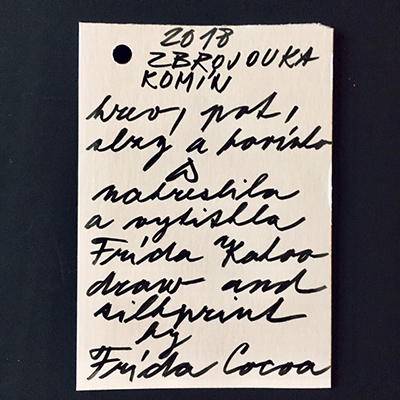 2018
ZBROJOVKA
KOMÍN
krev, pot,
slzy a
nakreslila
a vytiskla
Frída Kakao
draw and
silkprint
by
Frída Cocoa